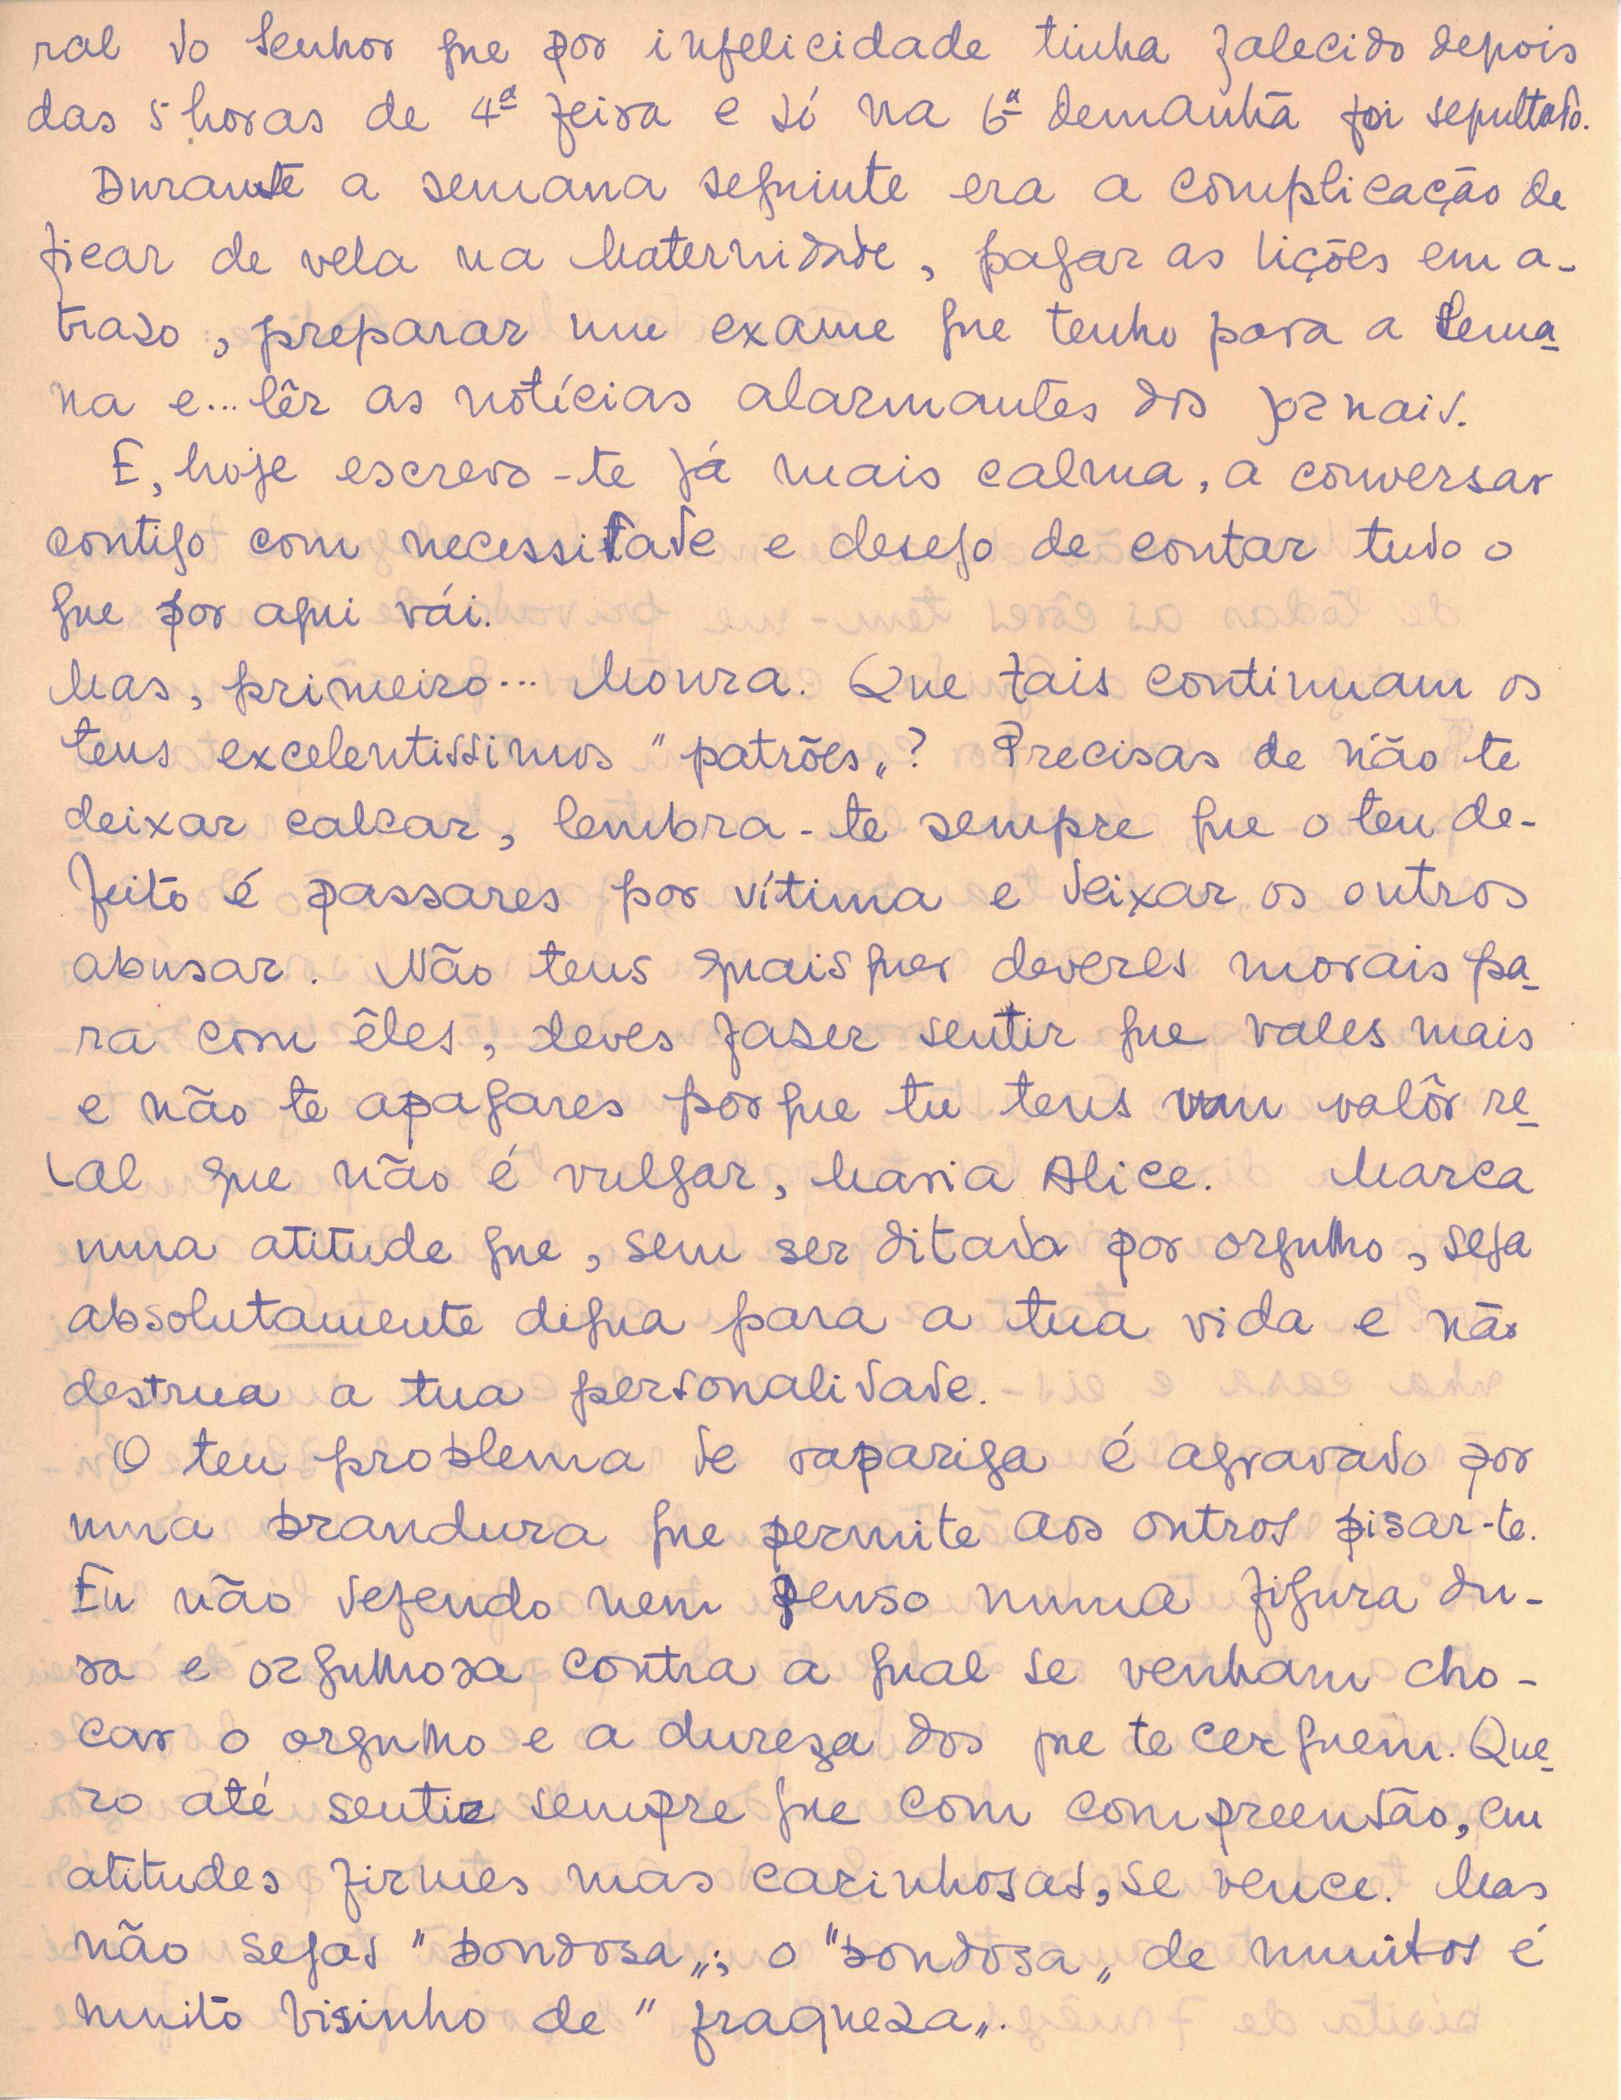 ral do Senhor que por infelicidade tinha falecido depois
das 5 horas de 4ª feira e só na 6ª demanhã foi sepultado.
Durante a semana seguinte era a complicação de
ficar de vela na Maternidade, pagar as lições em a-
traso, preparar um exame que tenho para a sema-
na e... lêr as notícias alarmantes dos jornais.
E, hoje escrevo-te já mais calma, a conversar
contigo com necessidade e desejo de contar tudo o
que por aqui vái.
Mas, primeiro... Moura. Que tais continuam os
teus excelentissimos "patrões"? Precisas de não te
deixar calcar, lembra-te sempre que o teu de-
feito é passares por vítima e deixar os outros
abusar. Não tens quaisquer deveres morais pa-
ra com êles, deves faser sentir que vales mais
e não te apagares porque tu tens um valôr re-
al que não é vulgar, Maria Alice. Marca
uma atitude que, sem ser ditada por orgulho, seja
absolutamente digna para a tua vida e não
destrua a tua personalidade.
O teu problema de rapariga é agravado por
uma brandura que permite aos outros pisar-te.
Eu não defendo nem penso numa figura du-
ra e orgulhosa contra a qual se venham cho-
car o orgulho e a dureza dos que te cerquem. Que-
ro até sentir sempre que com compreensão, em
atitudes firmes mas carinhosas, se vence. Mas
não sejas "bondosa"; o "bondosa" de muitos é
muito visinho de "fraquesa".